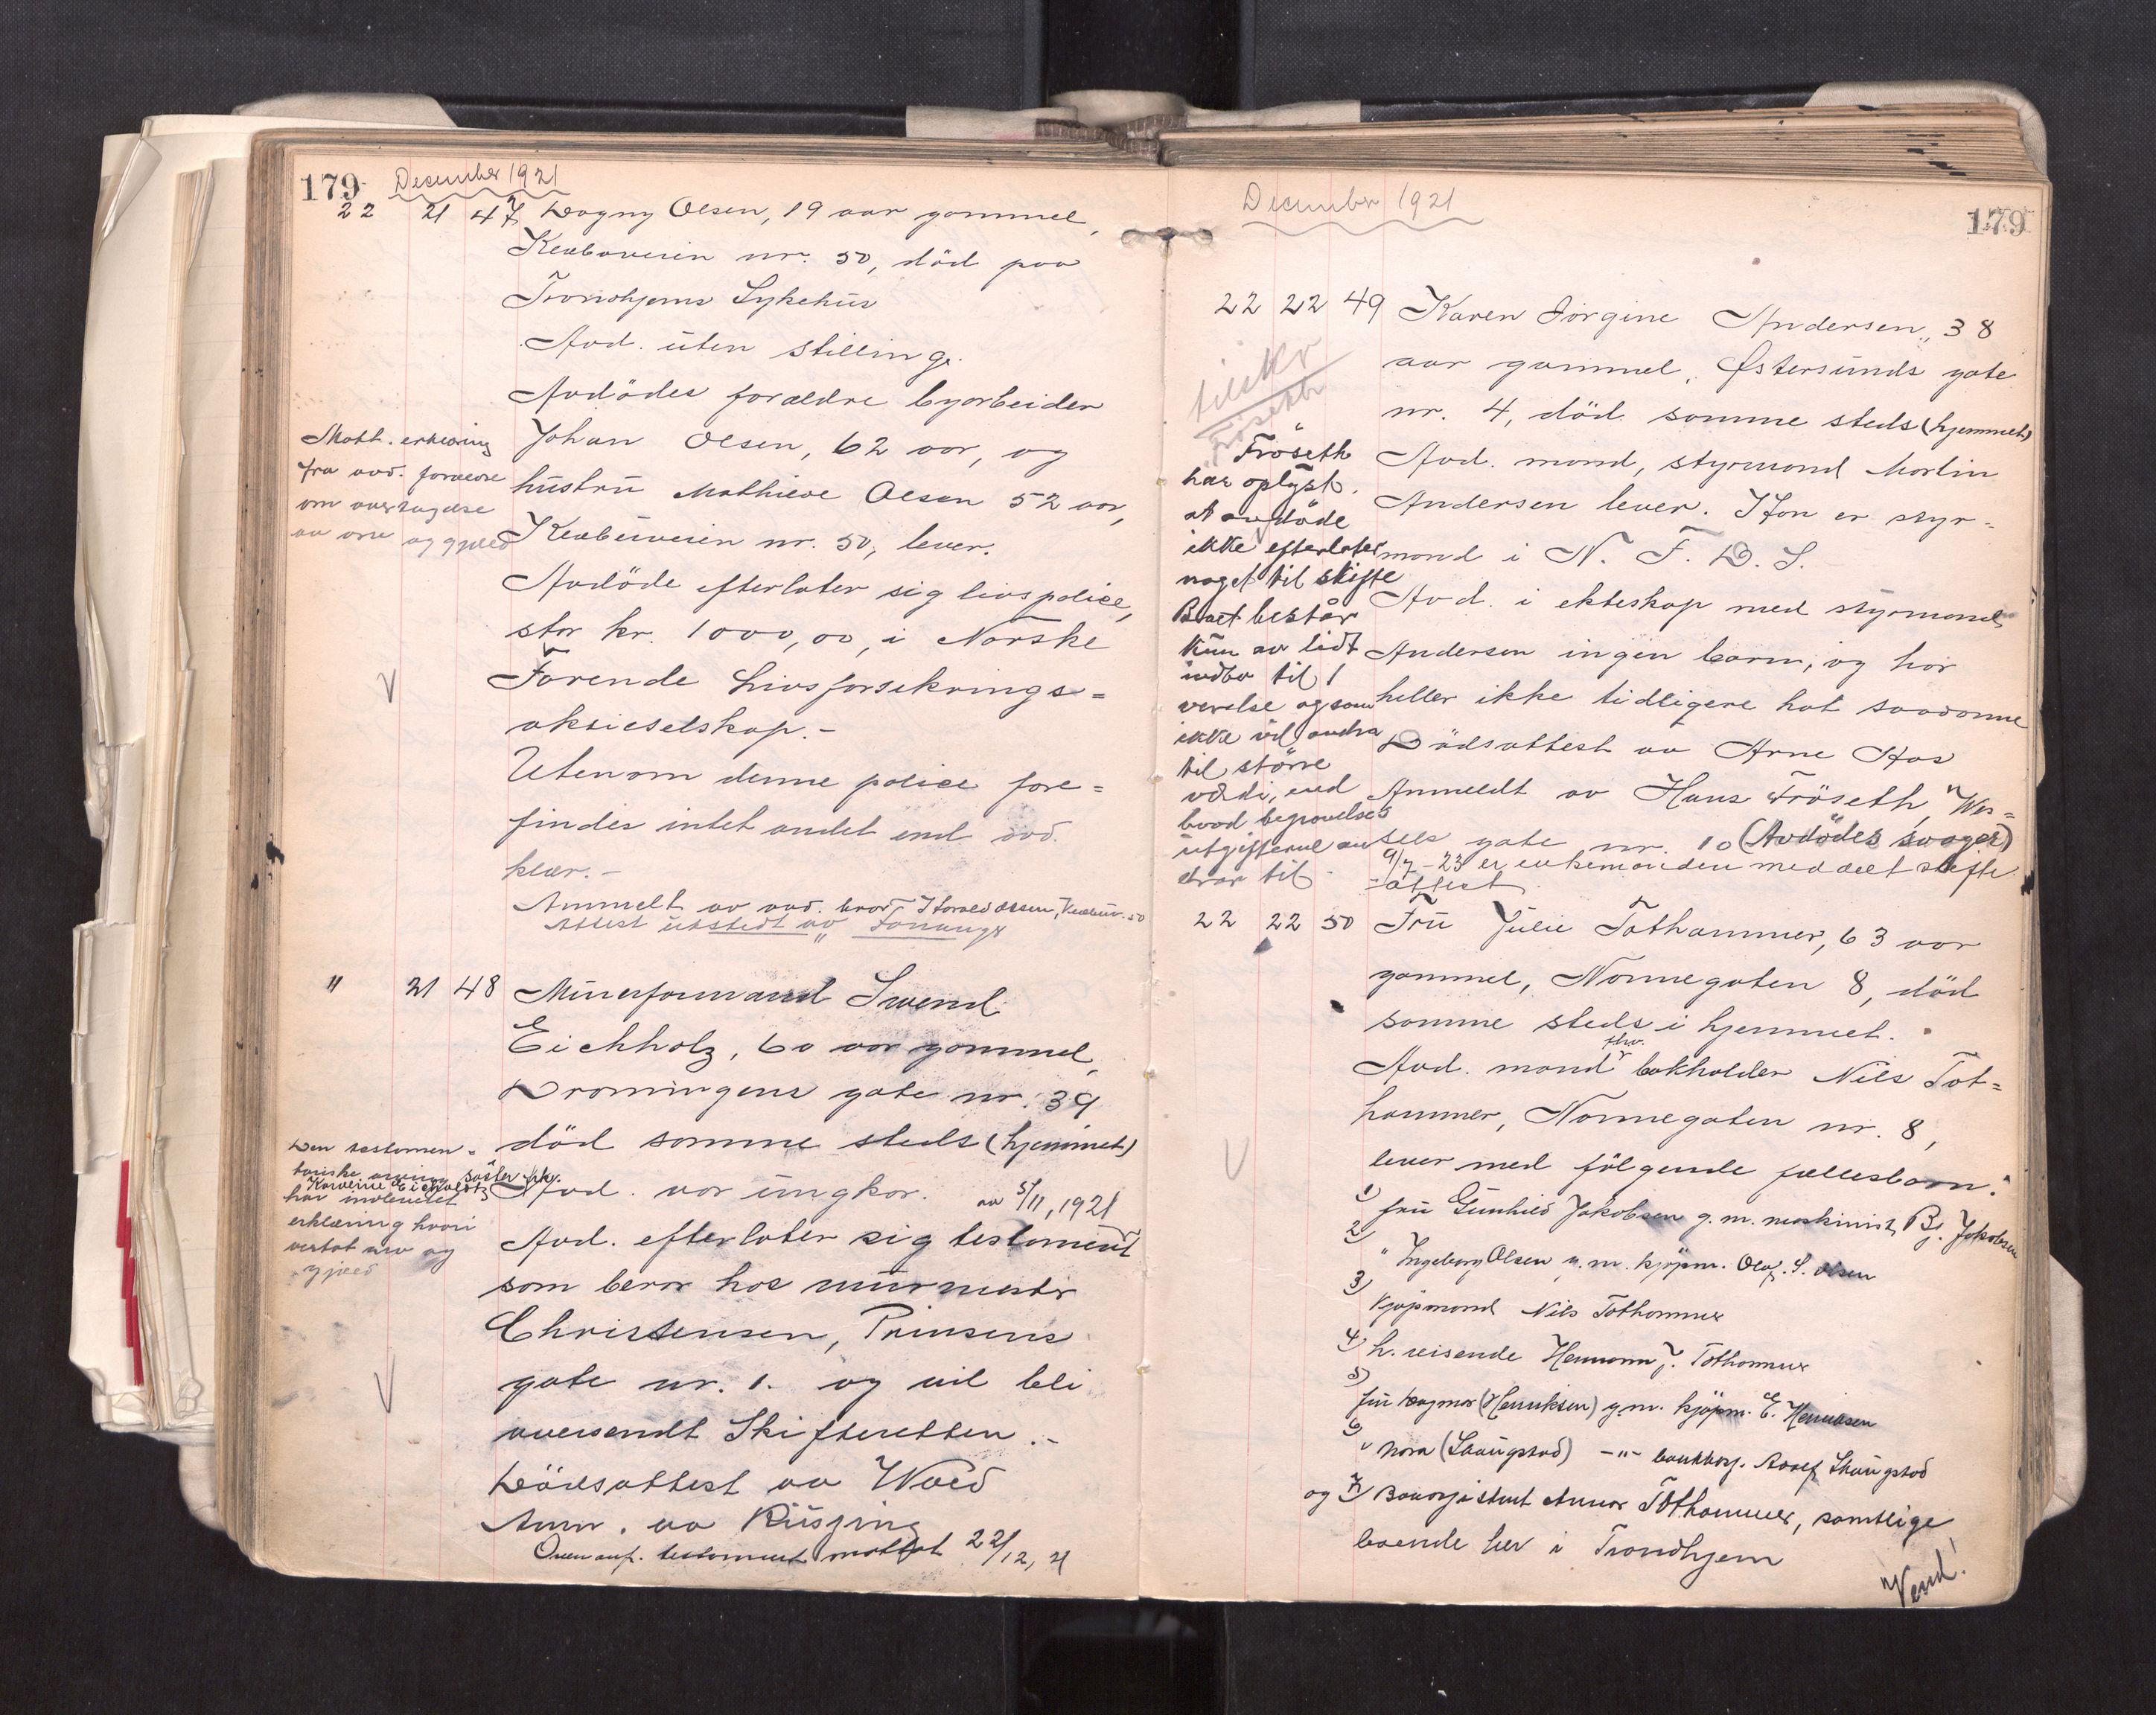 179 December 1921
22 21 47 Dagny Olsen, 19 aar gammel,
Klæbuveien nr. 50, død paa
Trondhjems Sykehus
Avd. uten stilling.
Avdödes forældre byarbeider
Johan Olsen, 62 aar, og
hustru Mathilde Olsen 52 aar,
Klæbuveien nr. 50, lever.
Avdöde efterlater sig livspolice,
stor kr. 1000,00, i Norske
Forende Livsforsikrings=
aktieselskap.-
Utenom denne police fore=
findes intet andet end avd.
klær.-
Anmeldt av avd. bror Harald Olsen, Klæbuv. 50
Attest utstedt av
Mott. erklæring
fra avd. forældre
om overtagelse
av arv og gjæld
" 21 48 Murerformand Svend
Eichholz, 60 aar gammel,
Dronningens gate nr. 39
död samme steds (hjemmet)
Avd. var ungkar.
av 5/11, 1921
Avd. efterlater sig testament
som beror hos murmester
Christensen, Prinsens
gate nr. 1. og vil bli
oversendt Skifteretten.-
Dödsattest av Wold
Anm. av Rüsjing
Ovenanf. testament mottat 22/12, 21
Den testamen=
tariske arving, søster frk.
Karoline Eichholtz
har indlevert
erklæring hvori
vedtat arv og
gjæld
December 1921 179
22 22 49 Karen Jørgine Andersen, 38
aar gammel, Østersunds gate
nr. 4, död samme steds (hjemmet)
Avd. mand, styrmand Martin
Andersen lever. Han er styr=
mand i N. F. D. S.
Avd. i ekteskap med styrmand
Andersen ingen barn, og har
heller ikke tidligere hat saadanne
Dödsattest av Arne Aas
Anmeldt av Hans Fröseth, Wes=
sels gate nr. 10 (Avdödes svoger)
9/7-23 er enkemanden meddelt skifte
attest
tilskr
Fröseth
Fröseth
har oplyst
at avdöde
ikke efterlater
noget til skifte
Boet består
kun av lidt
indbo til 1
værelse og som
ikke vil andra
til större
værdi, end
hvad begravelses
utgifterne an
drar til
22 22 50 Fru Julie Tothammer, 63 aar
gammel, Nonnegaten 8, död
samme steds i hjemmet.
fhv.
Avd. mand bokholder Nils Tot=
hammer, Nonnegaten nr. 8,
lever med fölgende fællesbarn:
1) fru Gunhild Jakobsen g. m. maskinist Bj. Jakobsen
2) " Ingeborg Olsen g. m. kjöpm. Olaf. S. Olsen
3) kjöpmand Nils Tothammer
4) h. reisende Hermann J. Tothammer
5) fru Dagmar (Henriksen) g. m. kjöpm. E. Henriksen
6) " Nora (Skaugstad) -"- bankborg. Adolf Skaugstad
og 7) Bauassistent Tothammer, samtlige
boende her i Trondhjem
Vend!